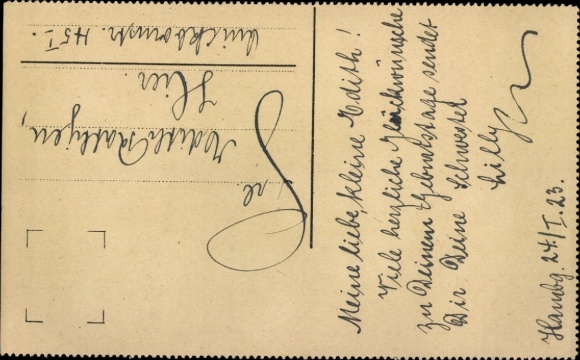 Meine liebe, kleine Edith!
Viele herzliche Glückwünsche
zu Deinem Geburtstage sendet
Dir Deine Schwester
Lilly
Hambg. 24/I. 23.
Frl.
Edith
Hier.
45 I.